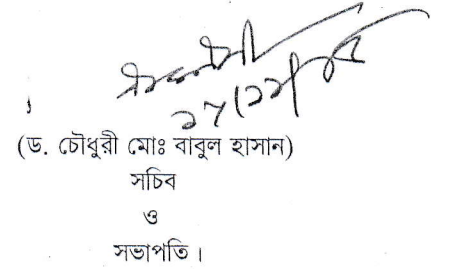 (ড. চৌধুরী মোঃ বাবুল হাসান)
সচিব
ও
সভাপতি।